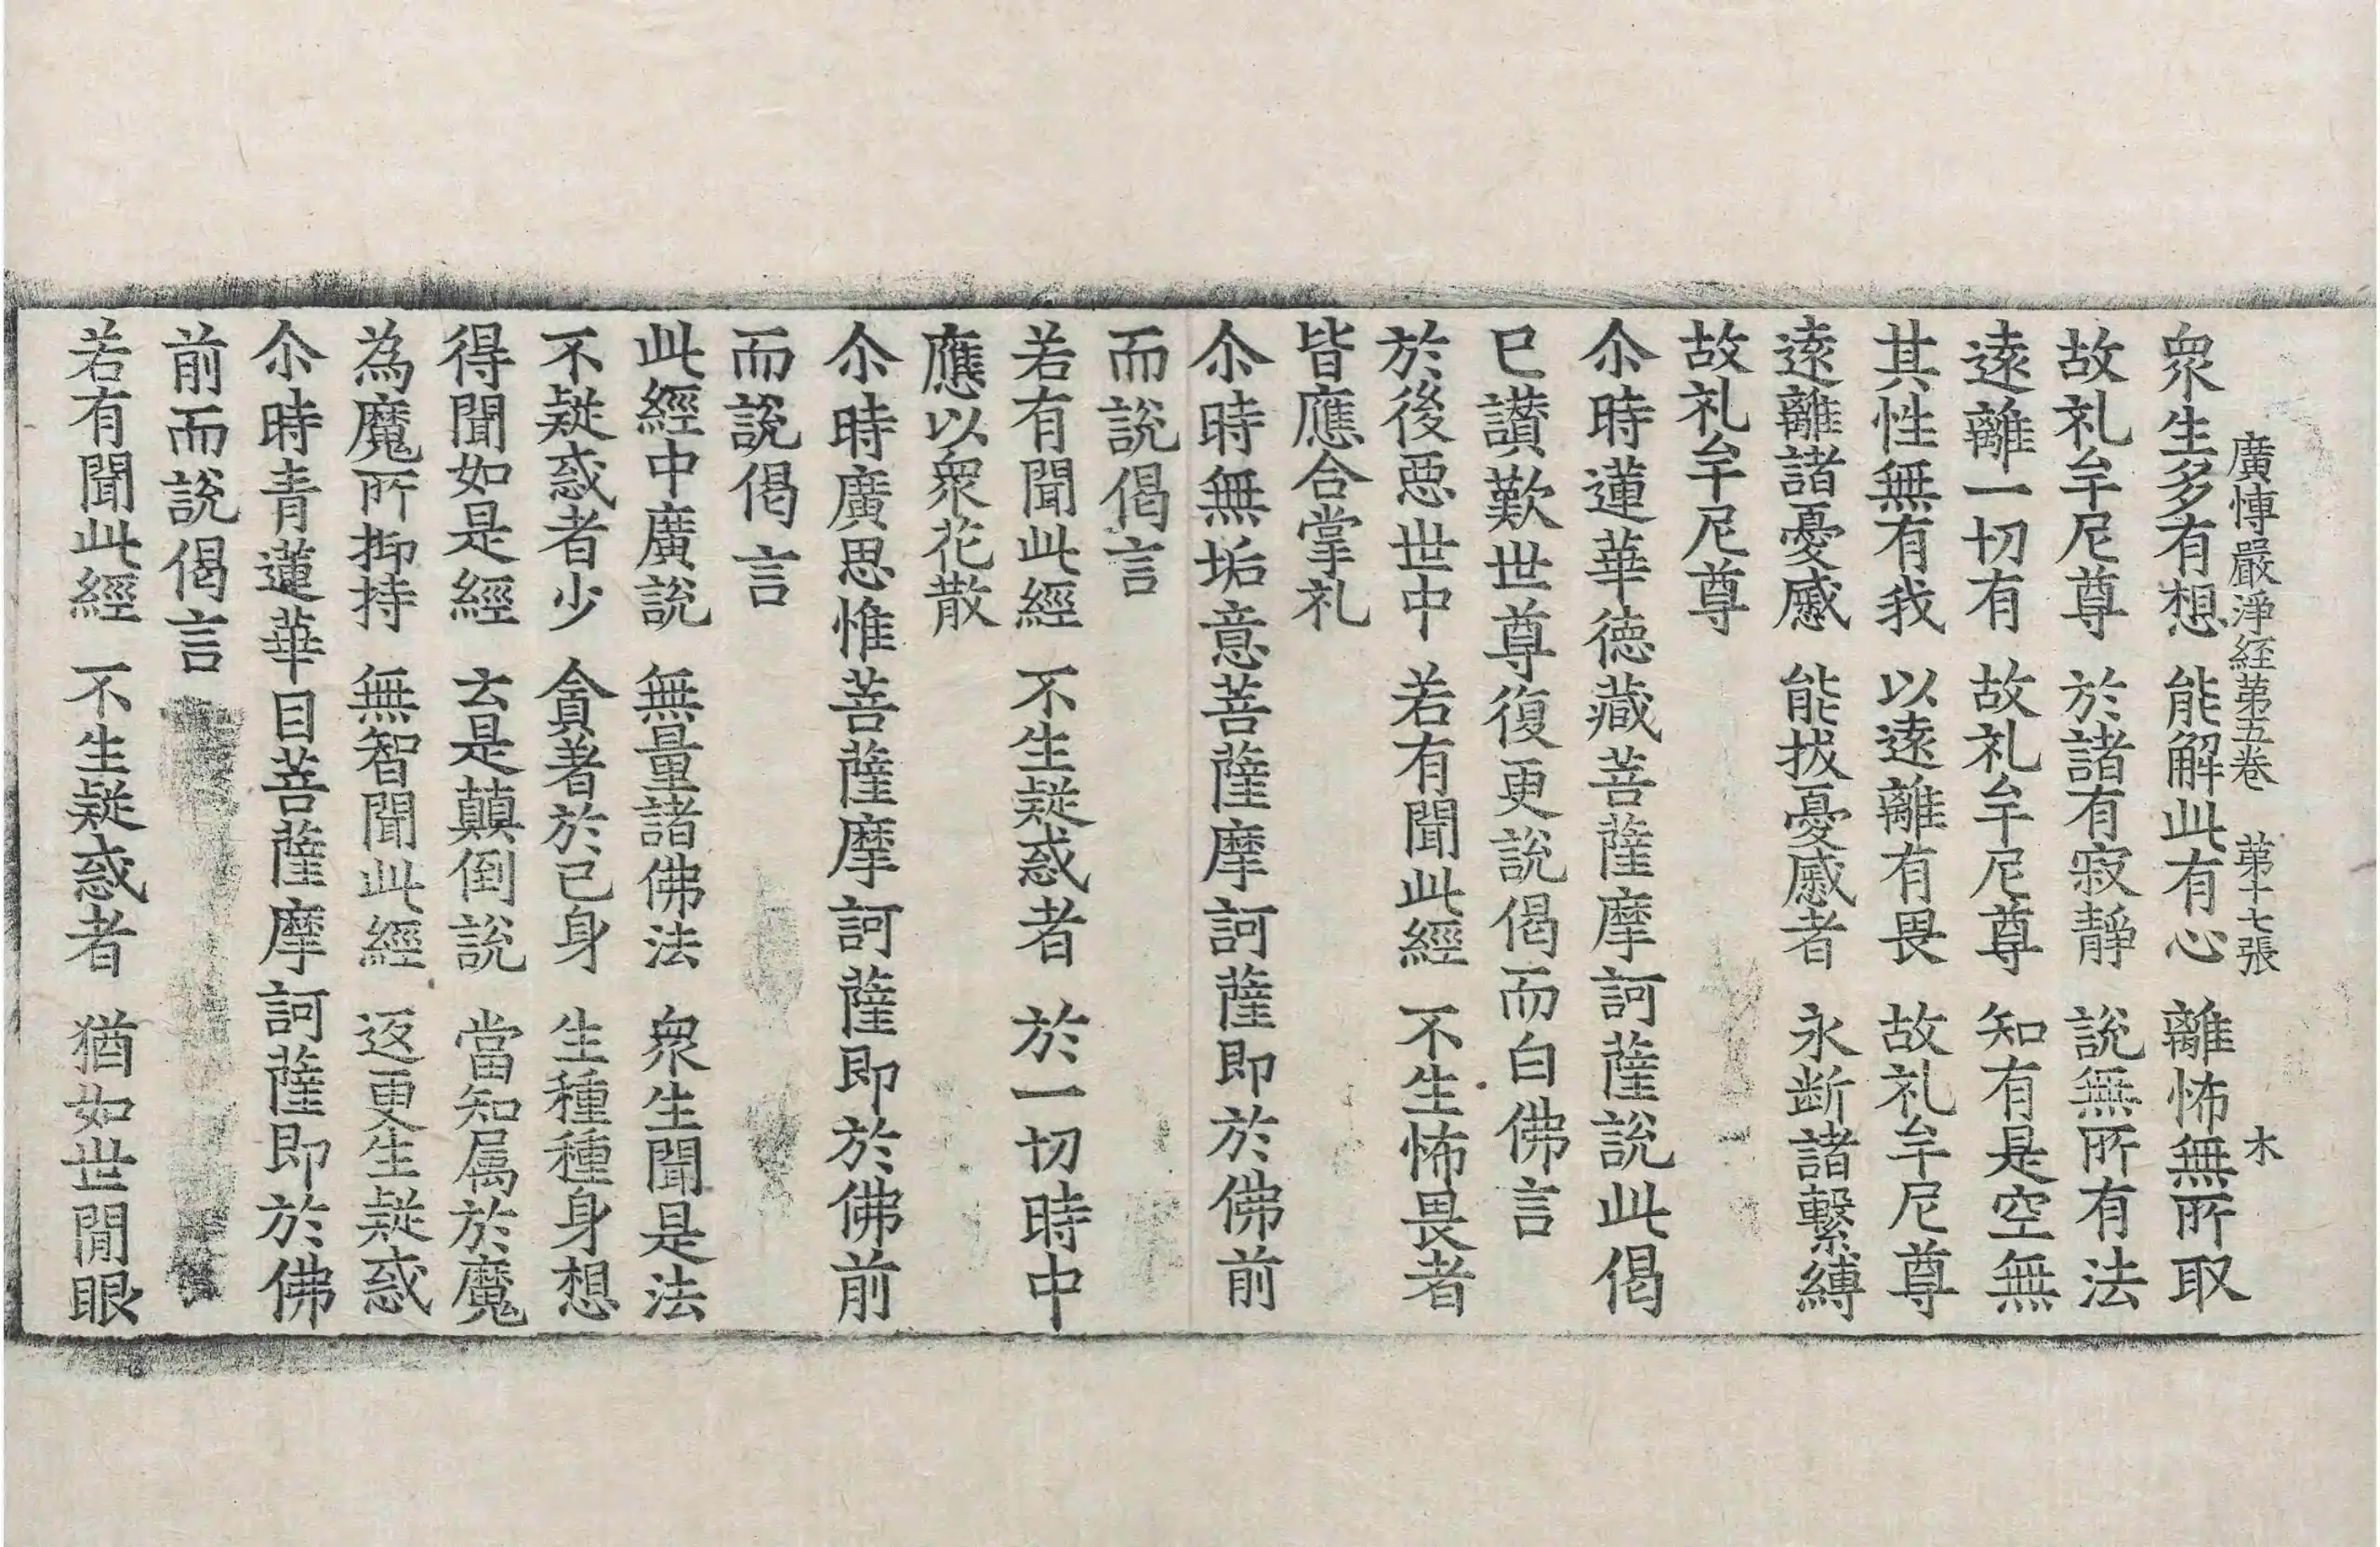 廣博嚴淨経苐五卷 苐十七張 木
衆生多有想 能解此有心 離怖無所取
故礼牟尼尊 於諸有寂靜 說無所有法
逺離一切有 故礼牟尼尊 知有是空無
其性無有我 以逺離有畏 故礼牟尼尊
逺離諸憂慼 能拔憂慼者 永断諸繫縛
故礼牟尼尊
尒時蓮華德藏菩薩摩訶薩說此偈
已讃歎世尊復更說偈而白佛言
於後悪世中 若有聞此經 不生怖畏者
皆應合掌礼
尒時無垢意菩薩摩訶薩即於佛前
而說偈言
若有聞此經 不生疑惑者 於一切時中
應以衆花散
尒時廣思惟菩薩摩訶薩即於佛前
而說偈言
此經中廣說 無量諸佛法 衆生聞是法
不疑惑者少 貪著於己身 生種種身想
得聞如是經 玄是顛倒說 當知属於魔
為魔所抑持 無智聞此經 返更生疑惑
尒時青蓮華目菩薩摩訶薩即於佛
前而說偈言
若有聞此經 不生疑惑者 猶如世閒眼